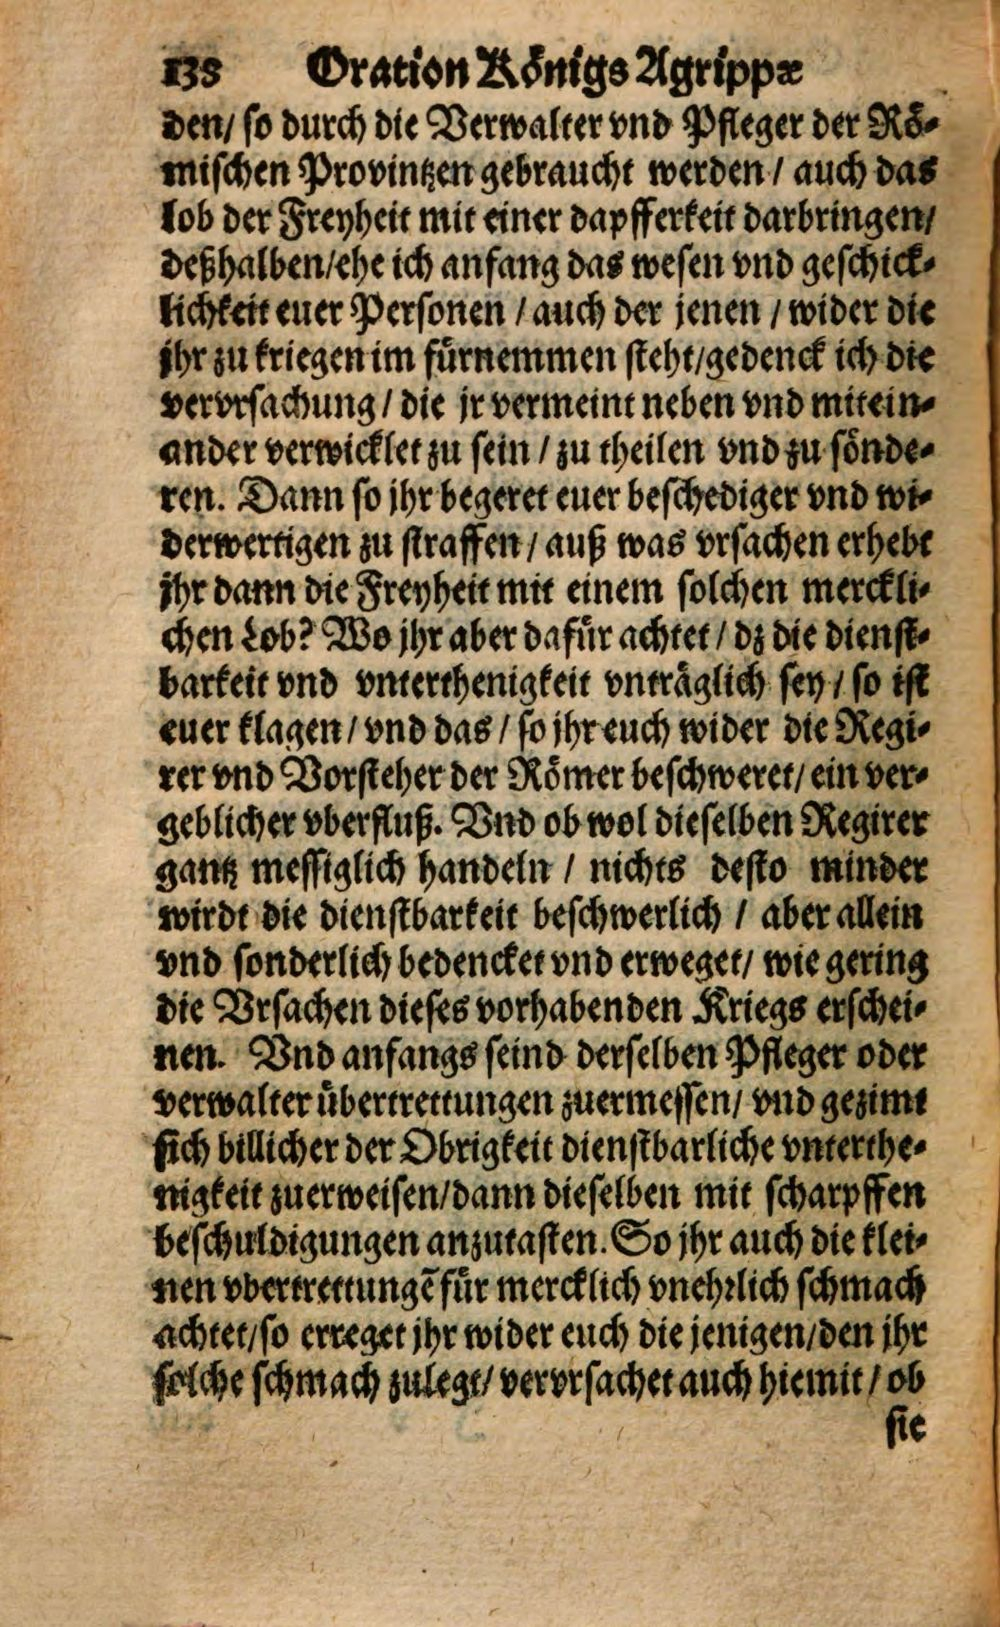 138 Oration Königs Agrippæ
den/ so durch die Verwalter vnd Pfleger der Rö-
mischen Provintzen gebraucht werden / auch das
lob der Freyheit mit einer dapfferkeit darbringen/
deßhalben/ehe ich anfang das wesen vnd geschick-
lichkeit euer Personen / auch der jenen / wider die
jhr zu kriegen im fürnemmen steht/gedenck ich die
vervrsachung / die jr vermeint neben vnd mitein-
ander verwicklet zu sein / zu theilen vnd zu sönde-
ren. Dann so jhr begeret euer beschediger vnd wi-
derwertigen zu straffen / auß was vrsachen erhebt
jhr dann die Freyheit mit einem solchen merckli-
chen Lob? Wo jhr aber dafür achtet / dz die dienst-
barkeit vnd vnterthenigkeit vnträglich sey / so ist
euer klagen / vnd das / so jhr euch wider die Regi-
rer vnd Vorsteher der Römer beschweret/ ein ver-
geblicher vberfluß. Vnd ob wol dieselben Regirer
gantz messiglich handeln / nichts desto minder
wirdt die dienstbarkeit beschwerlich / aber allein
vnd sonderlich bedencket vnd erweget/ wie gering
die Vrsachen dieses vorhabenden Kriegs erschei-
nen. Vnd anfangs seind derselben Pfleger oder
verwalter übertrettungen zuermessen/ vnd gezimt
sich billicher der Obrigkeit dienstbarliche vnterthe-
nigkeit zuerweisen/dann dieselben mit scharpffen
beschuldigungen anzutasten. So jhr auch die klei-
nen vbertrettungē für mercklich vnehrlich schmach
achtet/so erreget jhr wider euch die jenigen/den jhr
solche schmach zulegt/ vervrsachet auch hiemit / ob
sie